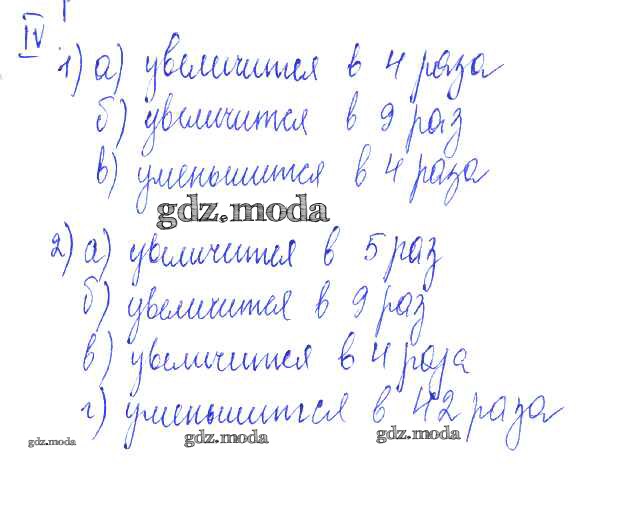 IV
1) а) увеличится в 4 раза
б) увеличится в 9 раз
в) уменьшится в 4 раза
gdz.moda
2) а) увеличится в 5 раз
б) увеличится в 9 раз
в) увеличится в 4 раза
г) уменьшится в 42 раза
gdz.moda gdz.moda gdz.moda